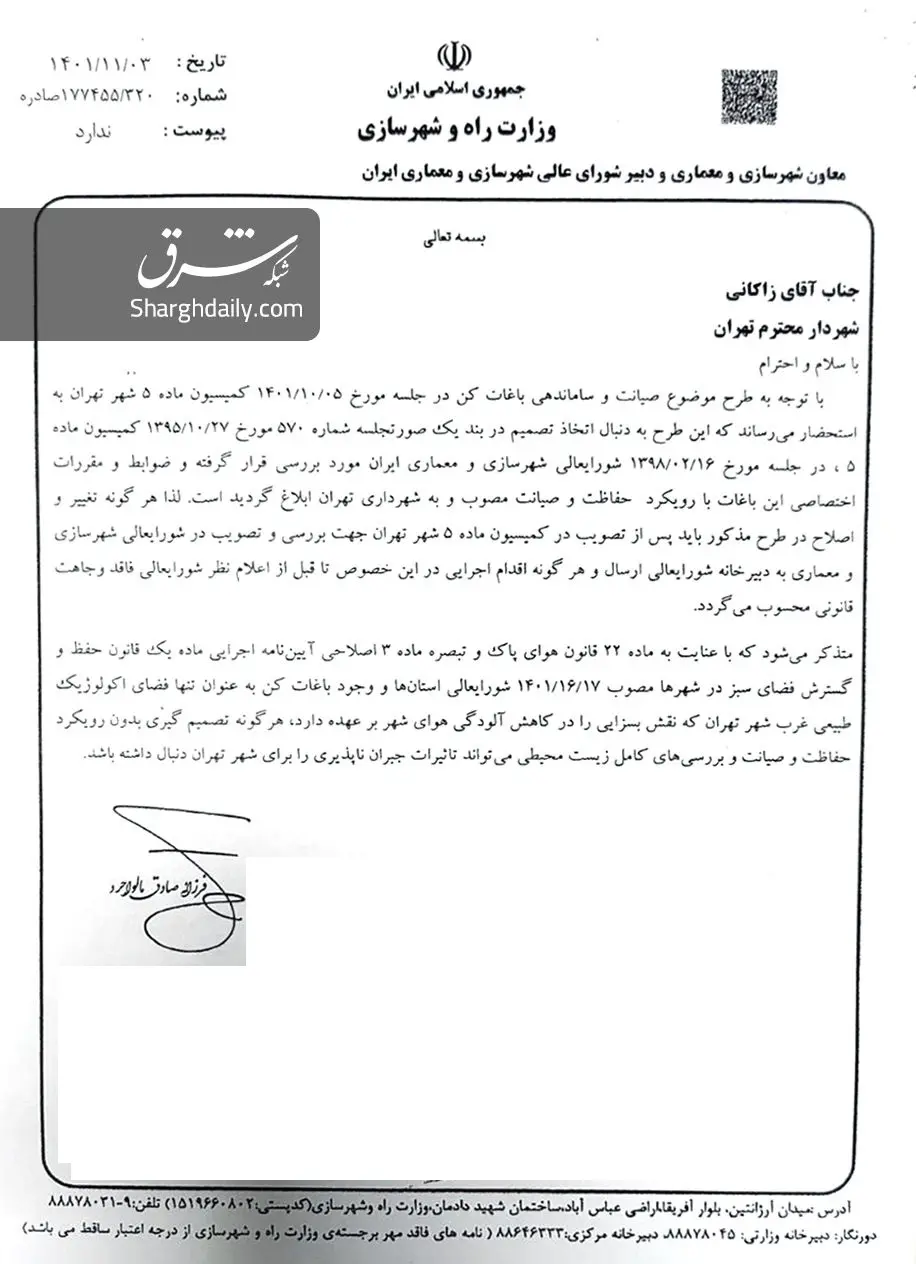 تاریخ : ۱۴۰۱/۱۱/۰۳
شماره: ۱۷۷۴۵۵/۳۲۰صادره
پیوست : ندارد
جمهوری اسلامی ایران
وزارت راه و شهرسازی
معاون شهرسازی و معماری و دبیر شورای عالی شهرسازی و معماری ایران
شبکه شرق
Sharghdaily.com
بسمه تعالی
جناب آقای زاکانی
شهردار محترم تهران
با سلام و احترام
با توجه به طرح موضوع صیانت و ساماندهی باغات کن در جلسه مورخ ۱۴۰۱/۱۰/۰۵ کمیسیون ماده ۵ شهر تهران به
استحضار می‌رساند که این طرح به دنبال اتخاذ تصمیم در بند یک صورتجلسه شماره ۵۷۰ مورخ ۱۳۹۵/۱۰/۲۷ کمیسیون ماده
۵ ، در جلسه مورخ ۱۳۹۸/۰۲/۱۶ شورایعالی شهرسازی و معماری ایران مورد بررسی قرار گرفته و ضوابط و مقررات
اختصاصی این باغات با رویکرد حفاظت و صیانت مصوب و به شهرداری تهران ابلاغ گردید است. لذا هر گونه تغییر و
اصلاح در طرح مذکور باید پس از تصویب در کمیسیون ماده ۵ شهر تهران جهت بررسی و تصویب در شورایعالی شهرسازی
و معماری به دبیرخانه شورایعالی ارسال و هر گونه اقدام اجرایی در این خصوص تا قبل از اعلام نظر شورایعالی فاقد وجاهت
قانونی محسوب می‌گردد.
متذکر می‌شود که با عنایت به ماده ۲۲ قانون هوای پاک و تبصره ماده ۳ اصلاحی آیین‌نامه اجرایی ماده یک قانون حفظ و
گسترش فضای سبز در شهرها مصوب ۱۴۰۱/۱۶/۱۷ شورایعالی استان‌ها و وجود باغات کن به عنوان تنها فضای اکولوژیک
طبیعی غرب شهر تهران که نقش بسزایی را در کاهش آلودگی هوای شهر بر عهده دارد، هرگونه تصمیم گیری بدون رویکرد
حفاظت و صیانت و بررسی‌های کامل زیست محیطی می‌تواند تاثیرات جبران ناپذیری را برای شهر تهران دنبال داشته باشد.
فرزانه صادق مالواجرد
آدرس :میدان آرژانتین، بلوار آفریقا،اراضی عباس آباد،ساختمان شهید دادمان،وزارت راه وشهرسازی(کدپستی:۱۵۱۹۶۶۰۸۰۲) تلفن:۹-۸۸۸۷۸۰۳۱
دورنگار: دبیرخانه وزارتی: ۸۸۸۷۸۰۴۵، دبیرخانه مرکزی:۸۸۶۴۶۳۳۳ ( نامه های فاقد مهر برجسته‌ی وزارت راه و شهرسازی از درجه اعتبار ساقط می باشد)